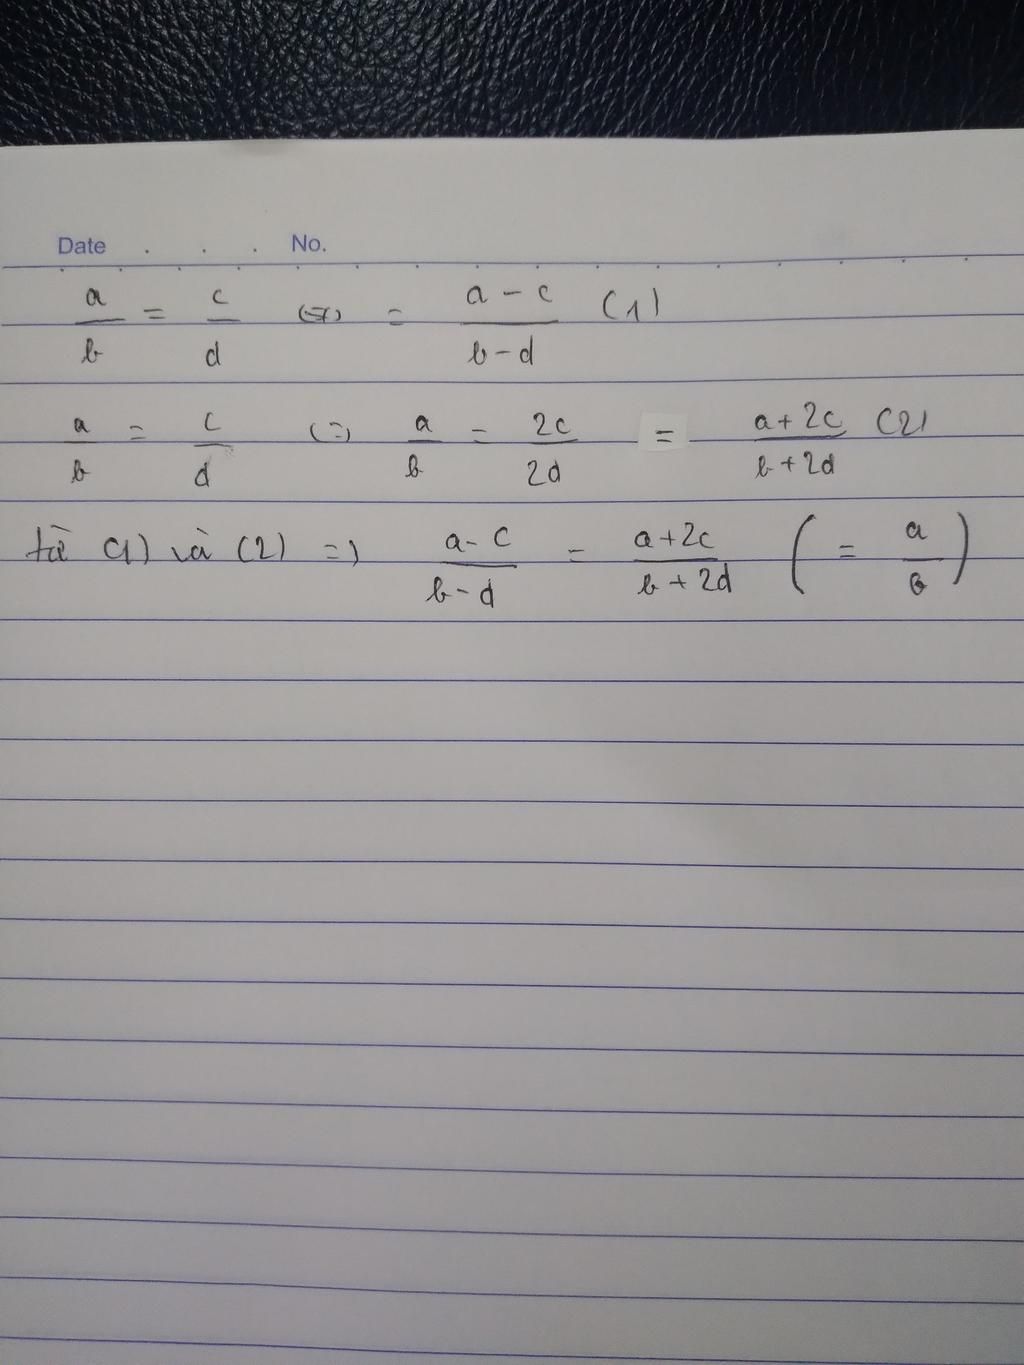 Date . . . No.
a/b = c/d (=) = a - c / b - d (1)
a/b = c/d (=) a/b = 2c/2d = a + 2c / b + 2d (2)
từ (1) và (2) =) a - c / b - d = a + 2c / b + 2d ( = a/b )